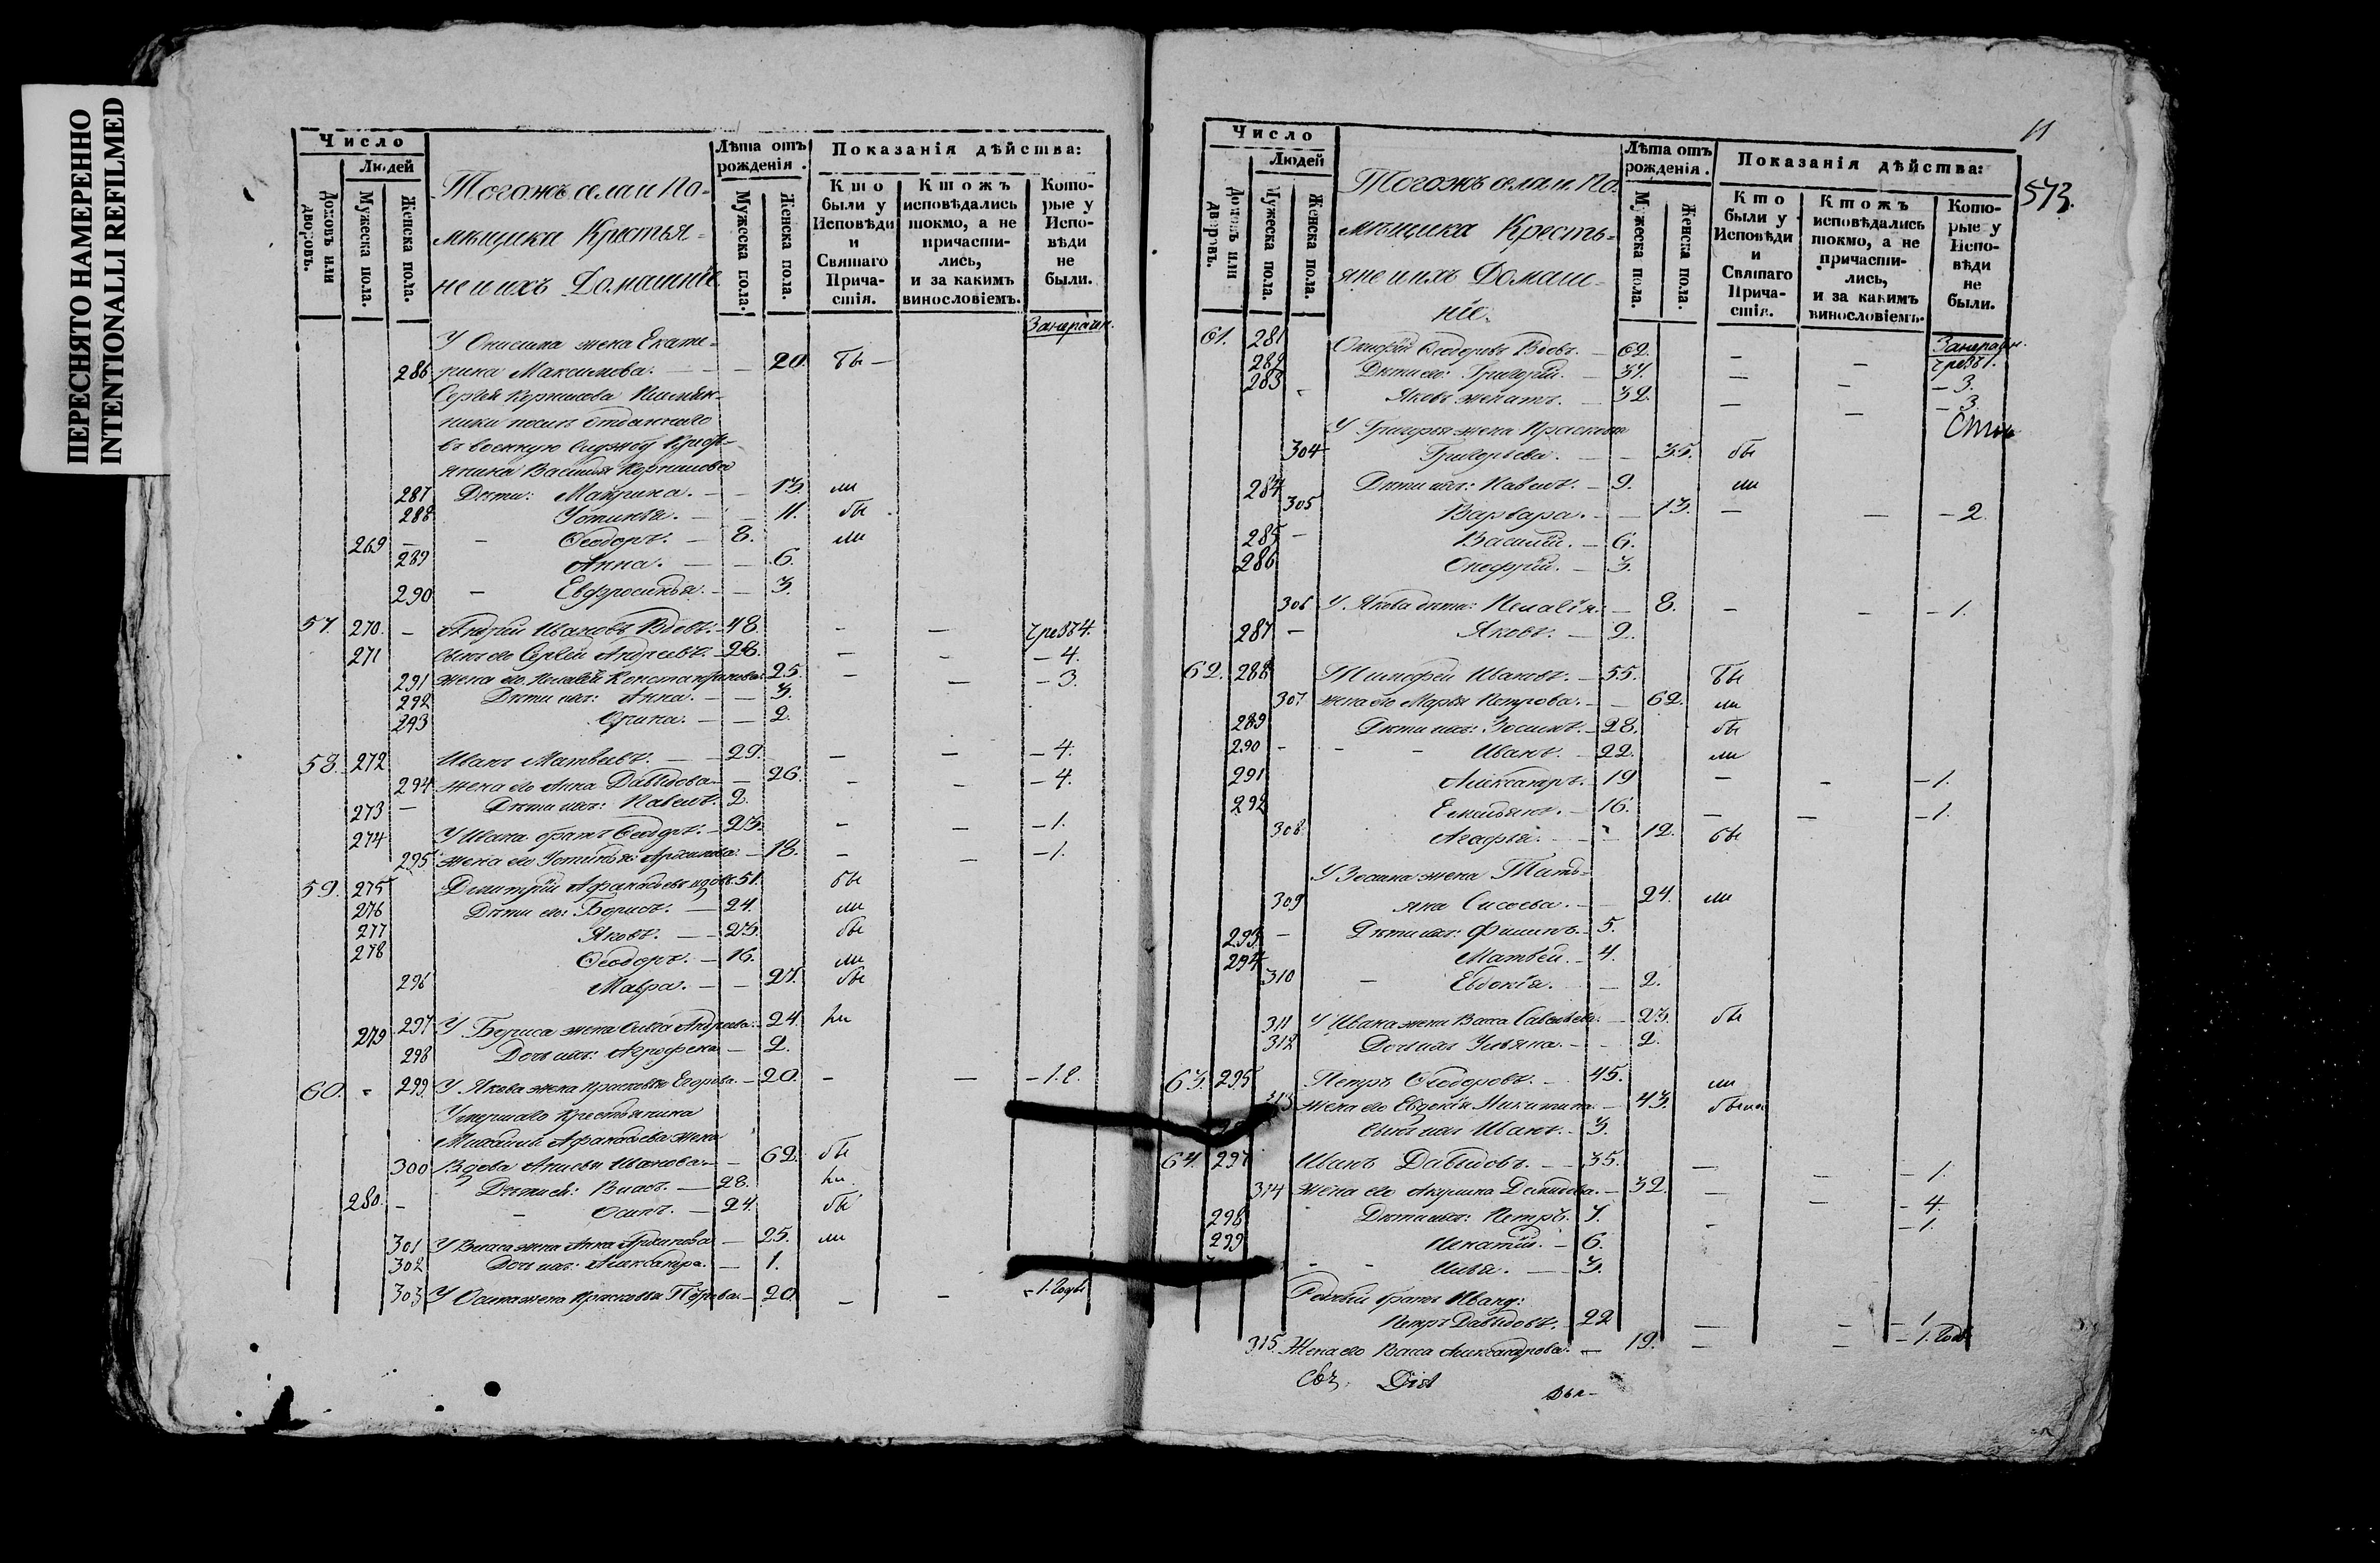 ПЕРЕСНЯТО НАМЕРЕННО
INTENTIONALLI REFILMED
Число
Людей
Домовъ или дворовъ.
Мужеска пола.
Женска пола.
Тогожъ села и По-
мѣщика Крестья-
не и ихъ Домашніе
Лѣта отъ рожденія.
Мужеска пола.
Женска пола.
Показанія дѣйства:
Кто были у Исповѣди и Святаго Причастія.
Ктожъ исповѣдались токмо, а не причастились, и за какимъ винословіемъ.
Которые у Исповѣди не были.
У Онисима жена Екате-
286 рина Максимова. — — 20. бы —
въ военную
287 Дѣти: Макрина. — — 13. ли
288 Устинья. — — 11. бы
269 — — Ѳеодоръ. — 8. ли
289 Анна. — — 6.
290 — Евфросинья. — — 3.
57. 270. — Андрей Ивановъ Вдовъ. — 48. — — 4.
271 сынъ его Сергей Андреевъ. — 28. — — — 4.
291 жена его Пелагея Константинова. 25. — — — 3.
292 Дѣти ихъ: Анна. — — 3.
293 Ирина. — — 2.
58. 272 Иванъ Матвѣевъ. — — 29. — — — 4.
294 жена его Анна Давыдова. — 26. — — — 4.
273 — Дѣти ихъ: Павелъ. 2.
274 У Ивана братъ Ѳеодоръ. — 23. — — — 1.
295 жена его Устинья Архипова. — 18. — — — 1.
59. 275 Дмитрій Афанасьевъ вдовъ. 51. бы
276 Дѣти его: Борисъ. — 24. ли
277 Яковъ. — 23. бы
278 Ѳеодоръ. — 16. ли
296 Мавра. — — 27. бы
279 297 У Бориса жена Андреева. — 24. ли
298 Дочь ихъ: Агрофена — 2.
60. - 299 У Якова жена Прасковья Егорова. — 20. — — — 1.
Умершаго Крестьянина
Михаила Афанасьева жена
300 Вдова Ивановa. — 62. бы
Дѣти ей: Власъ. — 28. ли
280. — — Осипъ. — 24. бы
301 У Власа жена Анна Архипова — 25. ли
302 Дочь ихъ: Александра. — 1.
303 У Осипа жена Прасковья Петрова. — 20. — — — 1.
11
573.
Число
Людей
Домовъ или дворовъ.
Мужеска пола.
Женска пола.
Тогожъ села и По-
мѣщика Кресть-
яне и ихъ Домаш-
ніе.
Лѣта отъ рожденія.
Мужеска пола.
Женска пола.
Показанія дѣйства:
Кто были у Исповѣди и Святаго Причастія.
Ктожъ исповѣдались токмо, а не причастились, и за какимъ винословіемъ.
Которые у Исповѣди не были.
61. 281 Онуфрій Ѳеодоровъ Вдовъ. — 62. — — 1.
282 Дѣти его: Григорій. — 37. — — — 3.
283 Яковъ женатъ. — 32. — — — 3.
У Григорья жена Прасковья
304 Григорьева. — — 35. бы
284 Дѣти ихъ: Павелъ. — 9. ли
305 Варвара. — — 13. — — — 2.
285 — Василій. — 6.
286 Онофрій. — 3.
306 У Якова дѣти: Пелагія. — 8. — — — 1.
287 — Яковъ. — 2.
62. 288 Тимофей Ивановъ. — 55. бы
307 жена его Марья Петрова. — — 62. ли
289 Дѣти ихъ: Зосимъ. — 28. бы
290 — — — Иванъ. — 22. ли
291 Александръ. 19 — — — 1.
292 Емельянъ. — 16. — — — 1.
308. Агафья. — — 12. бы
У Зосима жена Тать-
309 яна Сисоева. — — 24. ли
293 — Дѣти ихъ: Филипъ. — 5.
294 Матвей. — 4.
310 — Евдокія. — 2.
311 У Ивана жена Васса Савельева. — 23. бы
312 Дочь ихъ Ульяна. — — 2.
63. 295 Петръ Ѳеодоровъ. — 45. ли
313 жена его Евдокія Никитина. — 43. были
сынъ ихъ Иванъ. — 3.
64. 297 Иванъ Давыдовъ. — — 35. — — — 1.
314 жена его Акулина Демидова. — 32. — — — 4.
298 Дѣти ихъ: Петръ. 7. — — 1.
299 Игнатій. — 6.
— — Илья. — 3.
Родный братъ Ивану:
Петръ Давыдовъ. — 22 — — — 1
315. Жена его Васса Александрова. — 19. — — — 1.